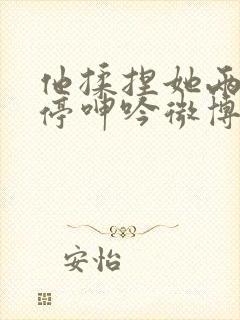 他揉捏她两
停呻吟微博
安怡